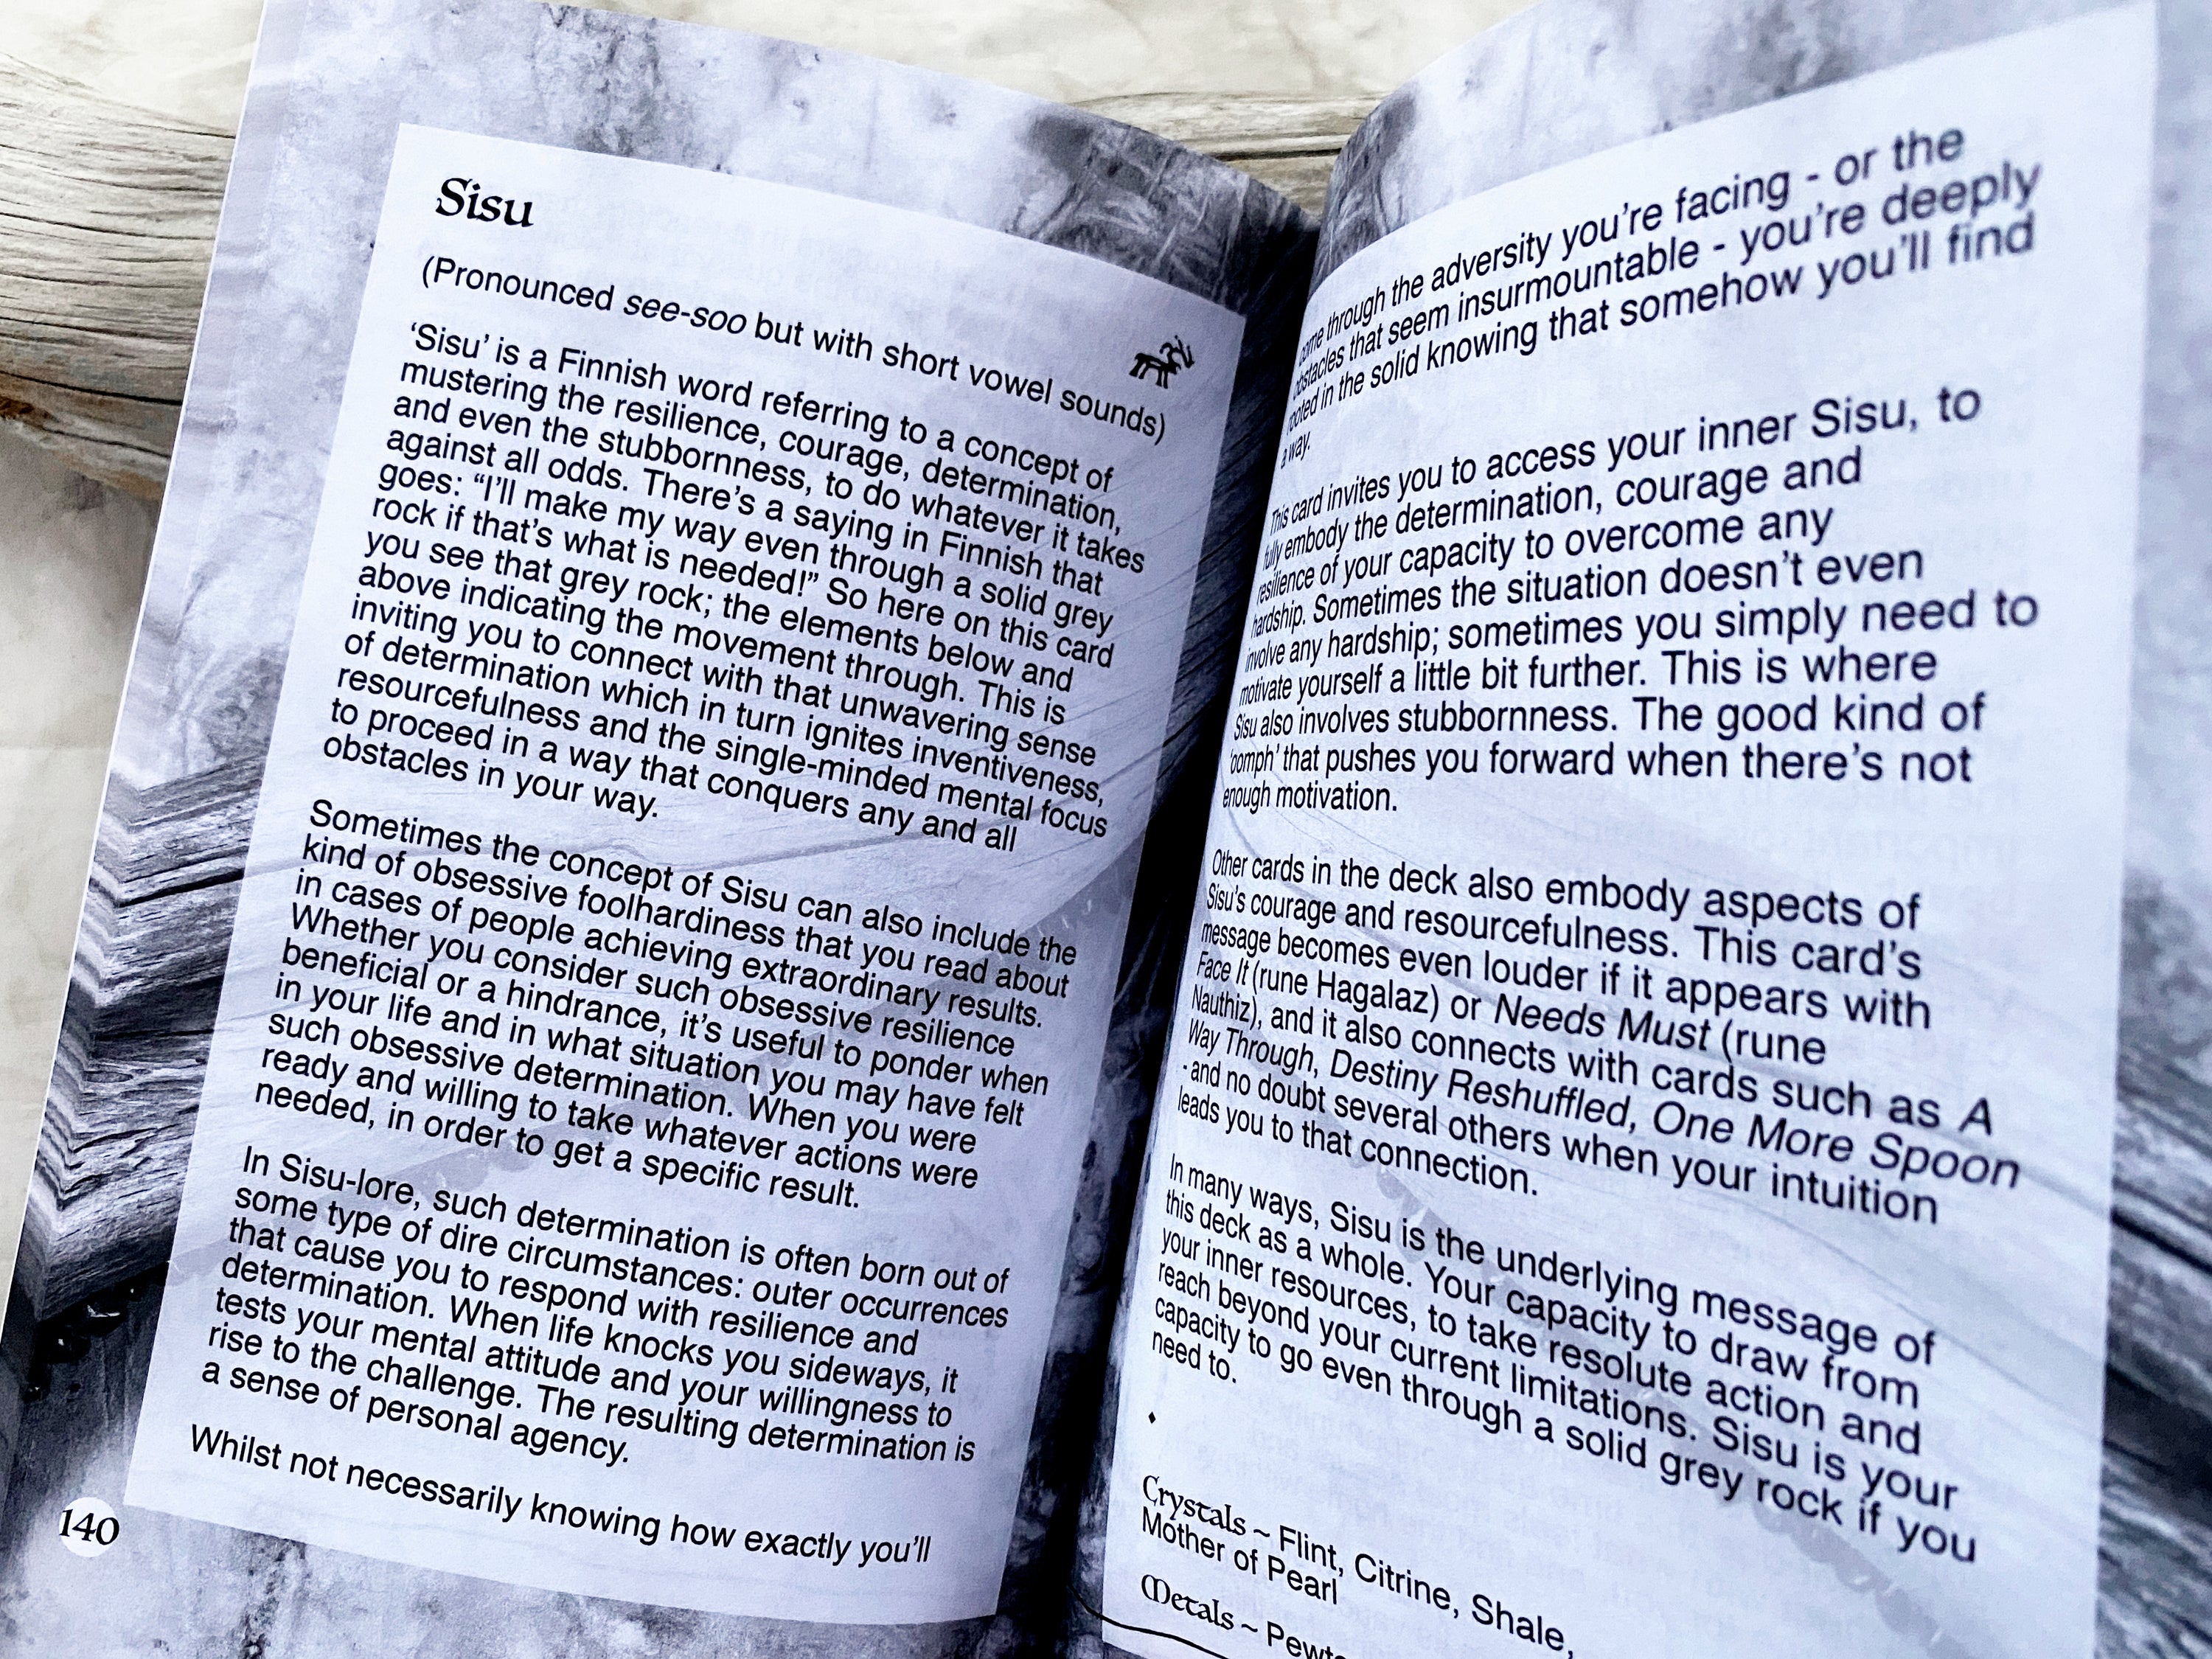 Sisu
(Pronounced see-soo but with short vowel sounds)
‘Sisu’ is a Finnish word referring to a concept of
mustering the resilience, courage, determination,
and even the stubbornness, to do whatever it takes
against all odds. There’s a saying in Finnish that
goes: “I’ll make my way even through a solid grey
rock if that’s what is needed!” So here on this card
you see that grey rock; the elements below and
above indicating the movement through. This is
inviting you to connect with that unwavering sense
of determination which in turn ignites inventiveness,
resourcefulness and the single-minded mental focus
to proceed in a way that conquers any and all
obstacles in your way.
Sometimes the concept of Sisu can also include the
kind of obsessive foolhardiness that you read about
in cases of people achieving extraordinary results.
Whether you consider such obsessive resilience
beneficial or a hindrance, it’s useful to ponder when
in your life and in what situation you may have felt
such obsessive determination. When you were
ready and willing to take whatever actions were
needed, in order to get a specific result.
In Sisu-lore, such determination is often born out of
some type of dire circumstances: outer occurrences
that cause you to respond with resilience and
determination. When life knocks you sideways, it
tests your mental attitude and your willingness to
rise to the challenge. The resulting determination is
a sense of personal agency.
Whilst not necessarily knowing how exactly you’ll
140
come through the adversity you’re facing - or the
obstacles that seem insurmountable - you’re deeply
rooted in the solid knowing that somehow you’ll find
a way.
This card invites you to access your inner Sisu, to
fully embody the determination, courage and
resilience of your capacity to overcome any
hardship. Sometimes the situation doesn’t even
involve any hardship; sometimes you simply need to
motivate yourself a little bit further. This is where
Sisu also involves stubbornness. The good kind of
‘oomph’ that pushes you forward when there’s not
enough motivation.
Other cards in the deck also embody aspects of
Sisu’s courage and resourcefulness. This card’s
message becomes even louder if it appears with
Face It (rune Hagalaz) or Needs Must (rune
Nauthiz), and it also connects with cards such as A
Way Through, Destiny Reshuffled, One More Spoon
- and no doubt several others when your intuition
leads you to that connection.
In many ways, Sisu is the underlying message of
this deck as a whole. Your capacity to draw from
your inner resources, to take resolute action and
reach beyond your current limitations. Sisu is your
capacity to go even through a solid grey rock if you
need to.
Crystals ~ Flint, Citrine, Shale,
Mother of Pearl
Metals ~